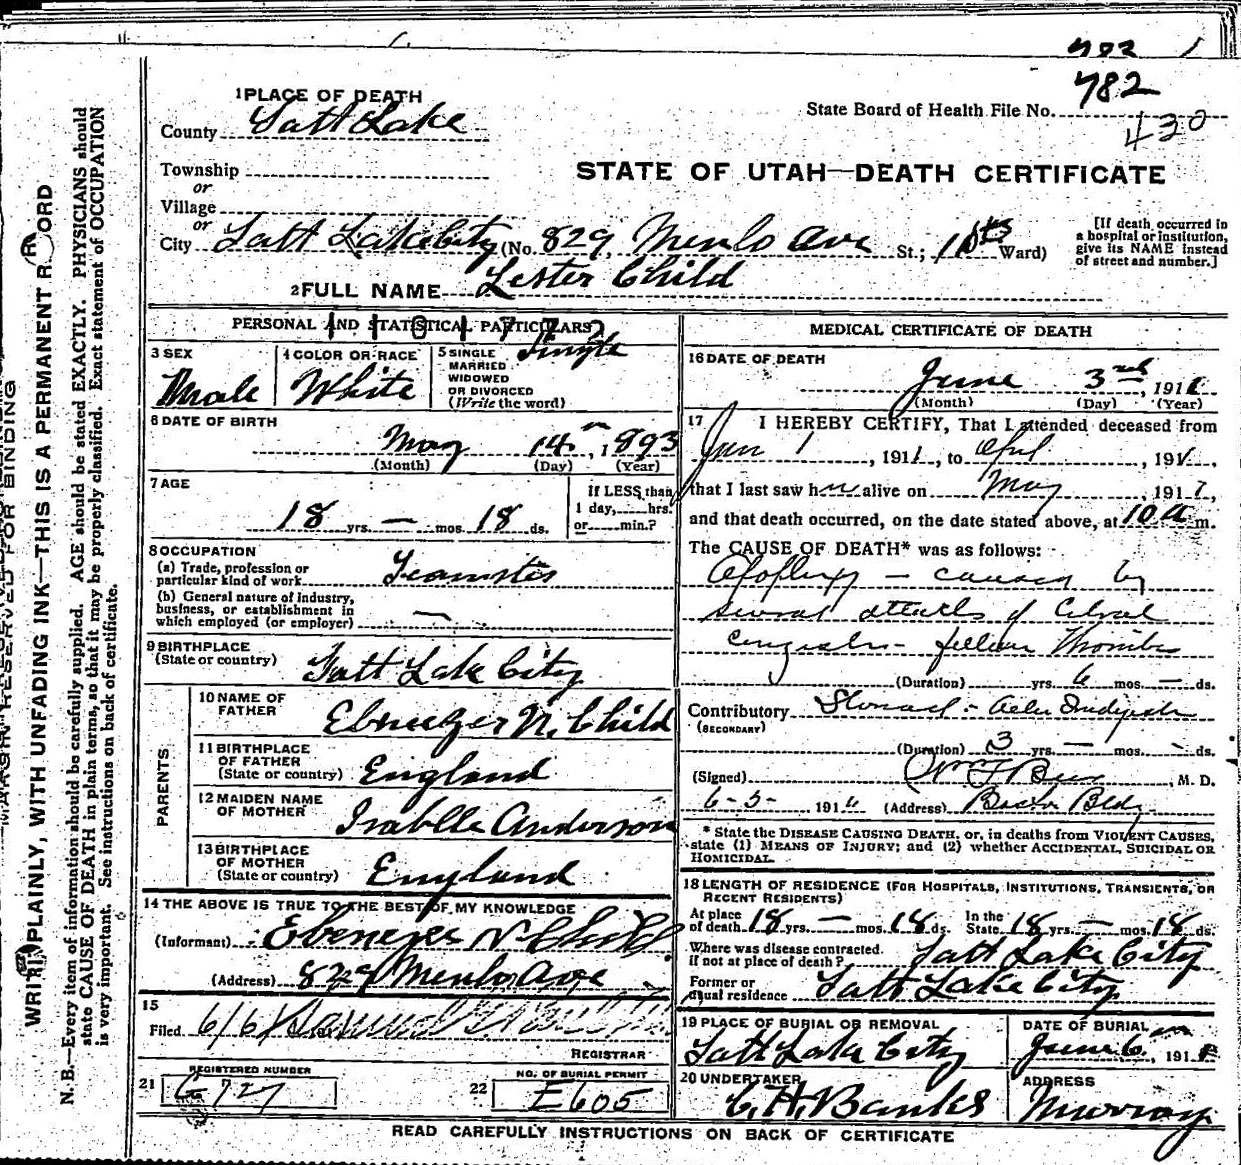 782 1
782
430
1 PLACE OF DEATH
County Salt Lake
State Board of Health File No.
Township
or
Village
or
STATE OF UTAH—DEATH CERTIFICATE
City Salt Lake City (No. 829, Menlo Ave St.; Ward)
[If death occurred in a hospital or institution, give its NAME instead of street and number.]
2 FULL NAME Lester Child
PERSONAL AND STATISTICAL PARTICULARS
3 SEX Male
4 COLOR OR RACE White
5 SINGLE MARRIED WIDOWED OR DIVORCED (Write the word) Single
6 DATE OF BIRTH
May 14th, 1893
(Month) (Day) (Year)
7 AGE
18 yrs. — mos. 18 ds.
If LESS than 1 day, hrs. or min.?
8 OCCUPATION
(a) Trade, profession or particular kind of work Teamster
(b) General nature of industry, business, or establishment in which employed (or employer) —
9 BIRTHPLACE
(State or country) Salt Lake City
PARENTS
10 NAME OF FATHER Ebenezer N. Child
11 BIRTHPLACE OF FATHER (State or country) England
12 MAIDEN NAME OF MOTHER Isablle Anderson
13 BIRTHPLACE OF MOTHER (State or country) England
14 THE ABOVE IS TRUE TO THE BEST OF MY KNOWLEDGE
(Informant) Ebenezer N Child
(Address) 829 Menlo Ave
15
Filed 6/6/
REGISTRAR
21 REGISTERED NUMBER G 727
22 NO. OF BURIAL PERMIT E605
MEDICAL CERTIFICATE OF DEATH
16 DATE OF DEATH
June 3rd, 1911
(Month) (Day) (Year)
17 I HEREBY CERTIFY, That I attended deceased from
Jan 1, 1911, to April, 191
that I last saw h alive on May, 191
and that death occurred, on the date stated above, at 10 a m.
The CAUSE OF DEATH* was as follows:
Apoplexy — caused by
several attacks of
(Duration) yrs. 6 mos. — ds.
Contributory
(SECONDARY)
(Duration) 3 yrs. — mos. - ds.
(Signed) M. D.
6-5- 191 (Address) Bldg
* State the DISEASE CAUSING DEATH, or, in deaths from VIOLENT CAUSES, state (1) MEANS OF INJURY; and (2) whether ACCIDENTAL, SUICIDAL OR HOMICIDAL.
18 LENGTH OF RESIDENCE (FOR HOSPITALS, INSTITUTIONS, TRANSIENTS, OR RECENT RESIDENTS)
At place of death 18 yrs. — mos. 18 ds. In the State 18 yrs. — mos. 18 ds.
Where was disease contracted, if not at place of death? Salt Lake City
Former or usual residence Salt Lake City
19 PLACE OF BURIAL OR REMOVAL Salt Lake City
DATE OF BURIAL June 6, 191
20 UNDERTAKER C. H. Banks
ADDRESS Murray
READ CAREFULLY INSTRUCTIONS ON BACK OF CERTIFICATE
RESERVED FOR BINDING
WRITE PLAINLY, WITH UNFADING INK—THIS IS A PERMANENT RECORD
N. B.—Every item of information should be carefully supplied. AGE should be stated EXACTLY. PHYSICIANS should
state CAUSE OF DEATH in plain terms, so that it may be properly classified. Exact statement of OCCUPATION
is very important. See instructions on back of certificate.